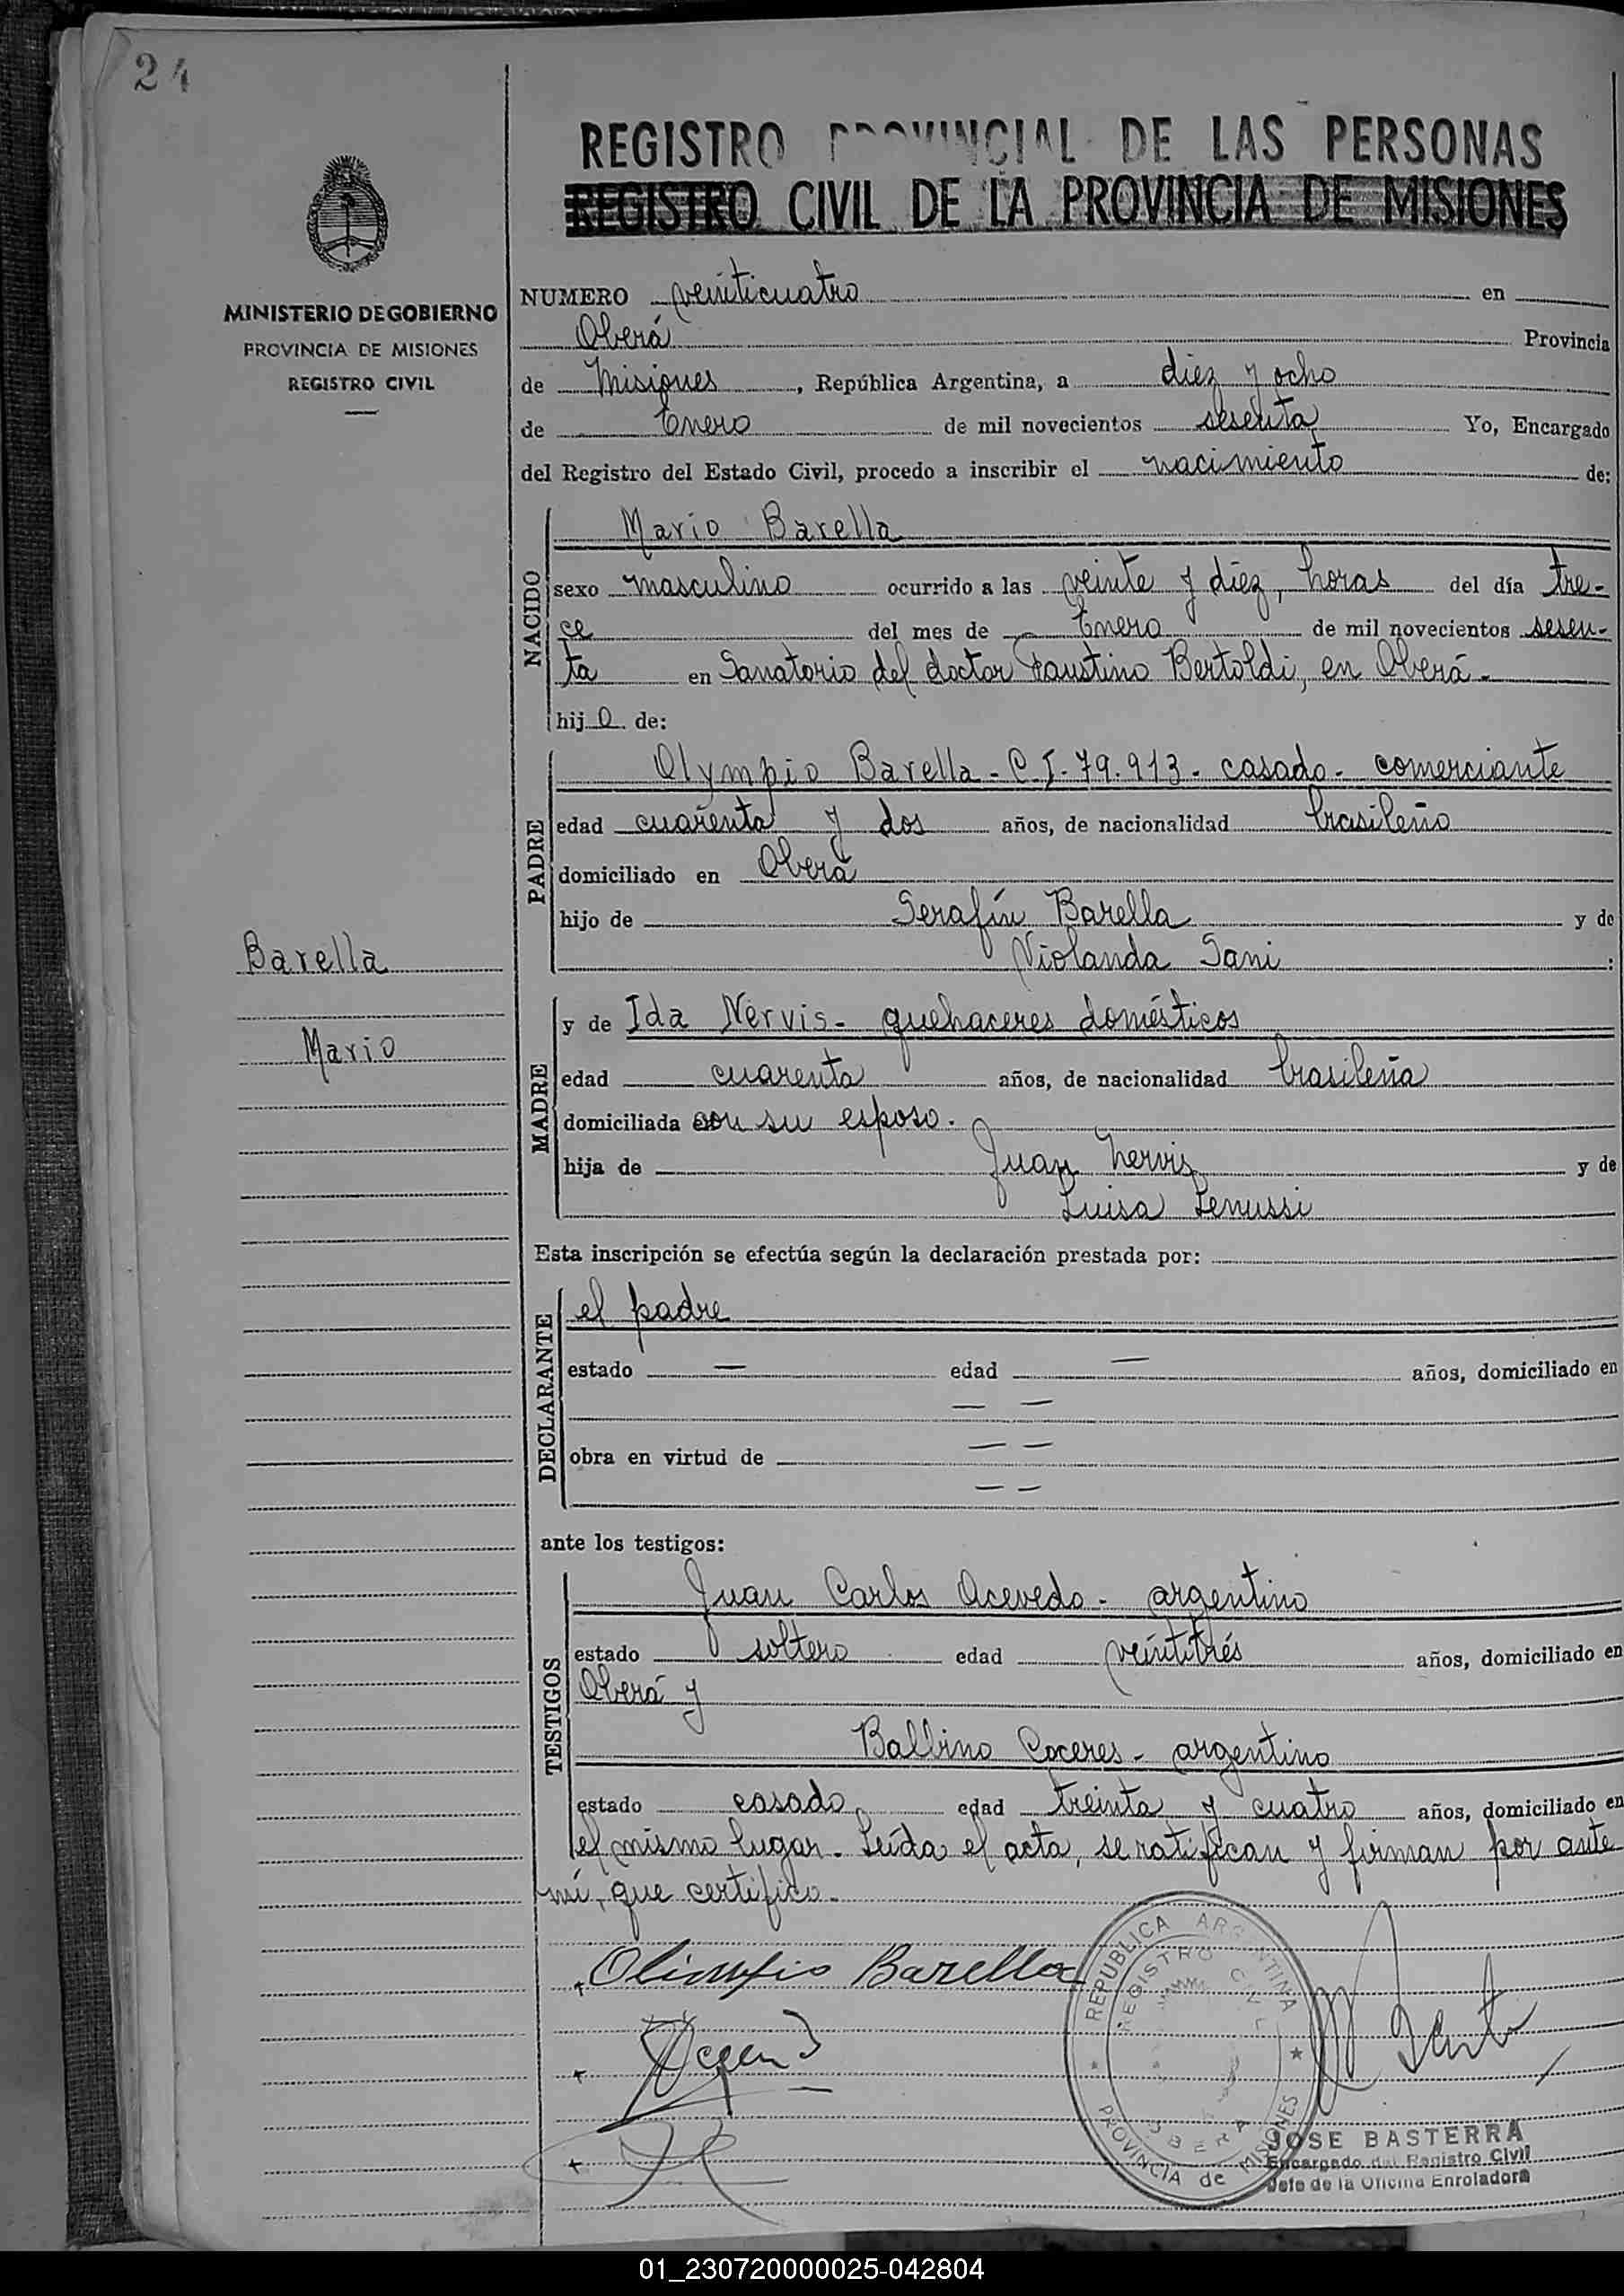 24
REGISTRO PROVINCIAL DE LAS PERSONAS
REGISTRO CIVIL DE LA PROVINCIA DE MISIONES
MINISTERIO DE GOBIERNO
PROVINCIA DE MISIONES
REGISTRO CIVIL
NUMERO veinticuatro en
Oberá Provincia
de Misiones, República Argentina, a diez y ocho
de Enero de mil novecientos sesenta Yo, Encargado
del Registro del Estado Civil, procedo a inscribir el nacimiento de:
NACIDO
Mario Barella
sexo masculino ocurrido a las veinte y diez, horas del día tre-
ce del mes de Enero de mil novecientos sesen-
ta en Sanatorio del doctor Faustino Bertoldi, en Oberá-
hijo de:
PADRE
Olympio Barella - C.I. 79.913 - casado - comerciante
edad cuarenta y dos años, de nacionalidad brasileño
domiciliado en Oberá
hijo de Serafín Barella y de
Violanda Sani :
Barella
Mario
MADRE
y de Ida Nervis - quehaceres domésticos
edad cuarenta años, de nacionalidad brasileña
domiciliada con su esposo.
hija de Juan Nervis y de
Luisa Lenussi
Esta inscripción se efectúa según la declaración prestada por:
DECLARANTE
el padre
estado — edad — años, domiciliado en
— —
obra en virtud de — —
— —
ante los testigos:
TESTIGOS
Juan Carlos Acevedo - argentino
estado soltero edad veintitrés años, domiciliado en
Oberá y
Balbino Coceres - argentino
estado casado, edad treinta y cuatro años, domiciliado en
el mismo lugar. Leída el acta, se ratifican y firman por ante
mí, que certifico.
Olimpio Barella
REPUBLICA ARGENTINA
REGISTRO CIVIL
OBERA
PROVINCIA de MISIONES
JOSE BASTERRA
Encargado del Registro Civil
Jefe de la Oficina Enroladora
01_230720000025-042804